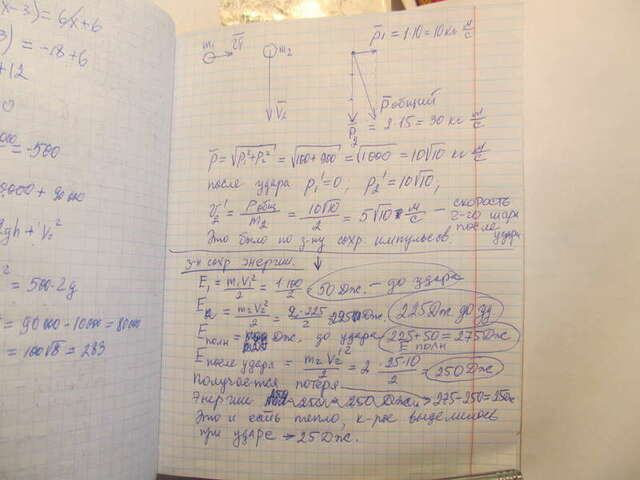 x-3)=6(x+6
3)=-18+6
+12
0
=-500
000+90000
2gh+V₀²
=500·2g
=90000-10000=80000
=100√8=283
m₁ v̄₁
m₂
V̄₂
p̄₁=1·10=10 кг м/с
p̄ общий
p̄₂=2·15=30 кг м/с
p̄=√(p₁²+p₂²)=√(100+900)=√1000=10√10 кг м/с
после удара p₁'=0, p₂'=10√10,
v₂'=p общ/m₂=10√10/2=5√10 м/с - скорость 2-го шара после удара
Это было по з-ну сохр. импульсов.
з-н сохр энергии.
E₁=m₁V₁²/2=1·100/2 50 Дж. - до удара
E₂=m₂V₂²/2=2·225/2 225Дж. 225Дж до уд
E полн= Дж. до удара 225+50=275Дж
E полн
E после удара=m₂V₂'²/2=2·25·10/2=250Дж
Получается потеря
Энергии 250Дж. → 275-250=25Дж
Это и есть тепло, к-рое выделилось
при ударе → 25Дж.